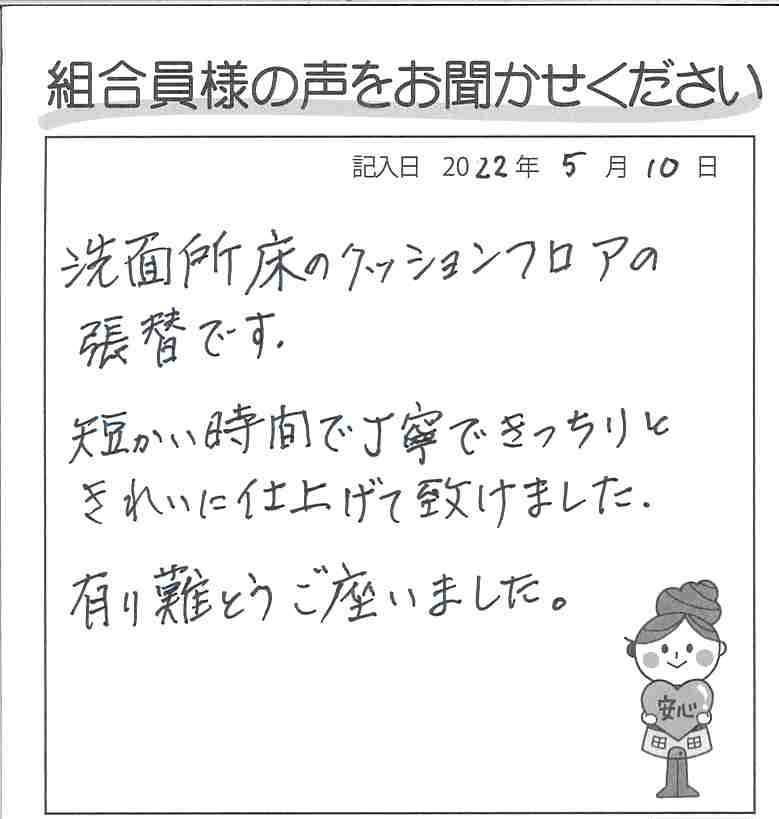 組合員様の声をお聞かせください
記入日 2022年 5月 10日
洗面所床のクッションフロアの
張替です.
短かい時間で丁寧できっちりと
きれいに仕上げて致けました.
有り難とうご座いました。
安心